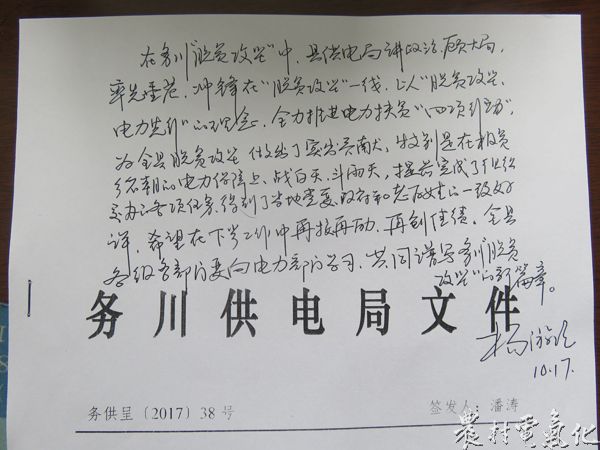 在务川"脱贫攻坚"中，县供电局讲政治、顾大局，
率先垂范，冲锋在"脱贫攻坚"一线，以"脱贫攻坚、
电力先行"的理念，全力推进电力扶贫"四项行动"，
为全县脱贫攻坚做出了突出贡献，特别是在极贫
乡镇的电力保障上，战白天、斗雨天，提前完成了
交办的各项任务，得到了当地党委、政府和老百姓的一致好
评，希望在下步工作中再接再励、再创佳绩。全县
各级各部门要向电力部门学习，共同谱写务川"脱贫
攻坚"的新篇章。
务川供电局文件
杨游明
10.17.
务供呈〔2017〕38号
签发人：潘涛
农村电气化